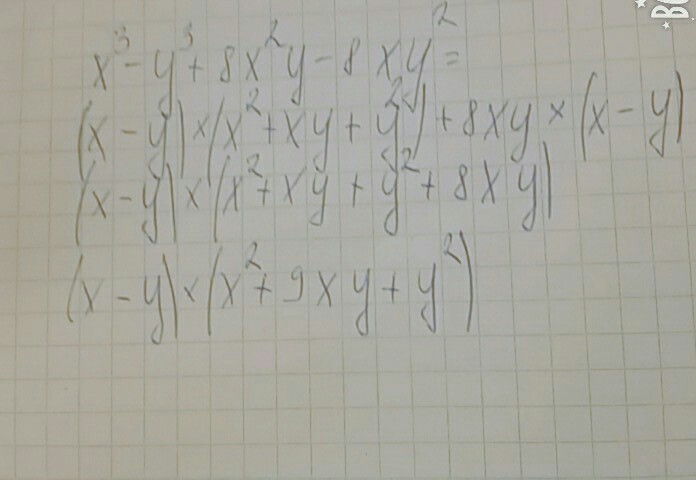 x³ - y³ + 8x²y - 8xy² =
(x - y) × (x² + xy + y²) + 8xy × (x - y)
(x - y) × (x² + xy + y² + 8xy)
(x - y) × (x² + 9xy + y²)